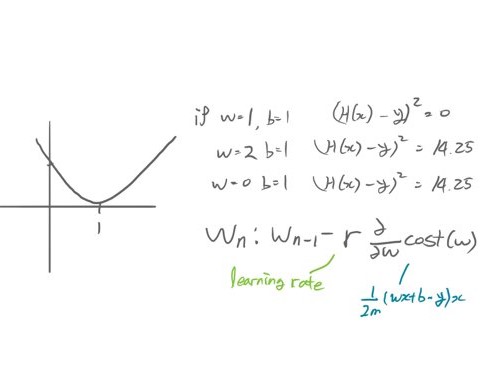 if w=1, b=1 (H(x) - y)² = 0
w=2 b=1 (H(x) - y)² = 14.25
w=0 b=1 (H(x) - y)² = 14.25
1
Wn : Wn-1 - r ∂/∂w cost(w)
learning rate
1/2m (wx+b-y)x